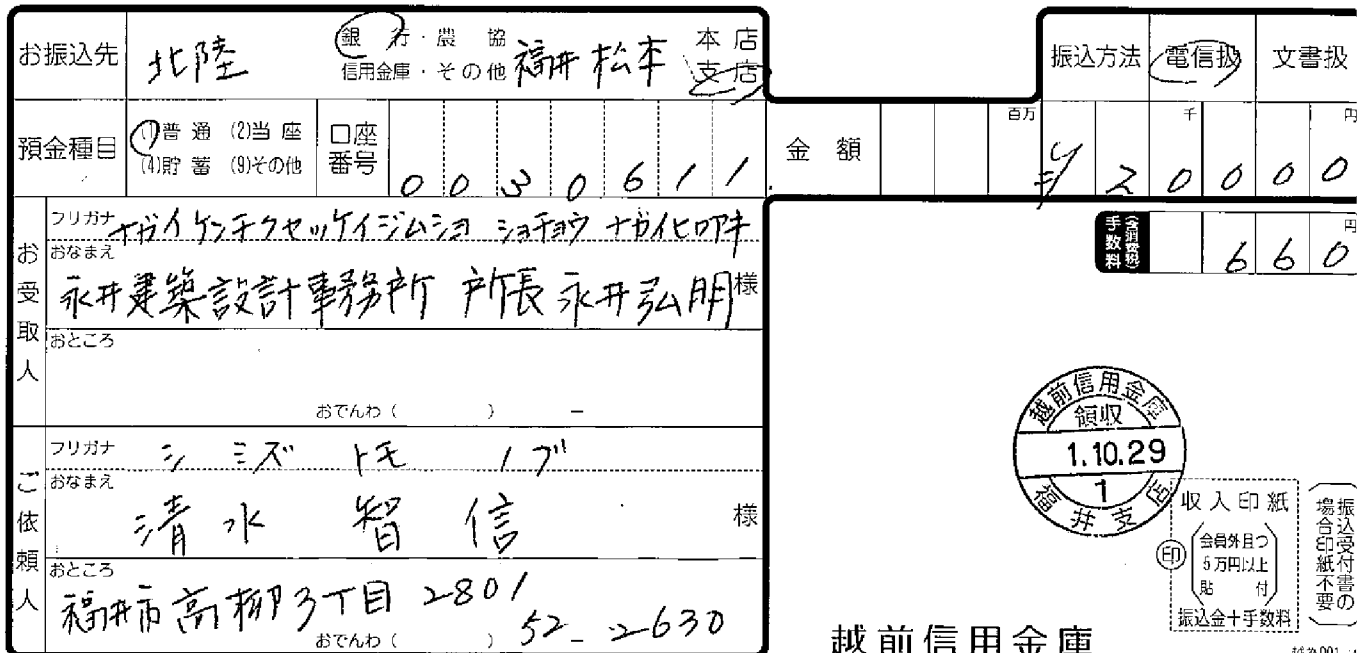 お振込先 北陸 銀行・農協 信用金庫・その他 福井松本 本店 支店
振込方法 電信扱 文書扱
預金種目 (1)普通 (2)当座 (4)貯蓄 (9)その他 口座番号 0030611
金額 百万 千 円 20000
フリガナ ナガイケンチクセッケイジムショ ショチョウ ナガイヒロアキ
お受取人 おなまえ 永井建築設計事務所 所長 永井弘明 様
おところ
おでんわ( ) －
手数料 (含消費税) 660 円
フリガナ シミズ トモノブ
ご依頼人 おなまえ 清水 智信 様
おところ 福井市高柳3丁目2801
おでんわ( ) 52-2630
越前信用金庫
領収
1.10.29
1
福井支店
収入印紙
印
会員外且つ
5万円以上
貼付
振込金+手数料
振込受付書の
場合印紙不要
越前信用金庫